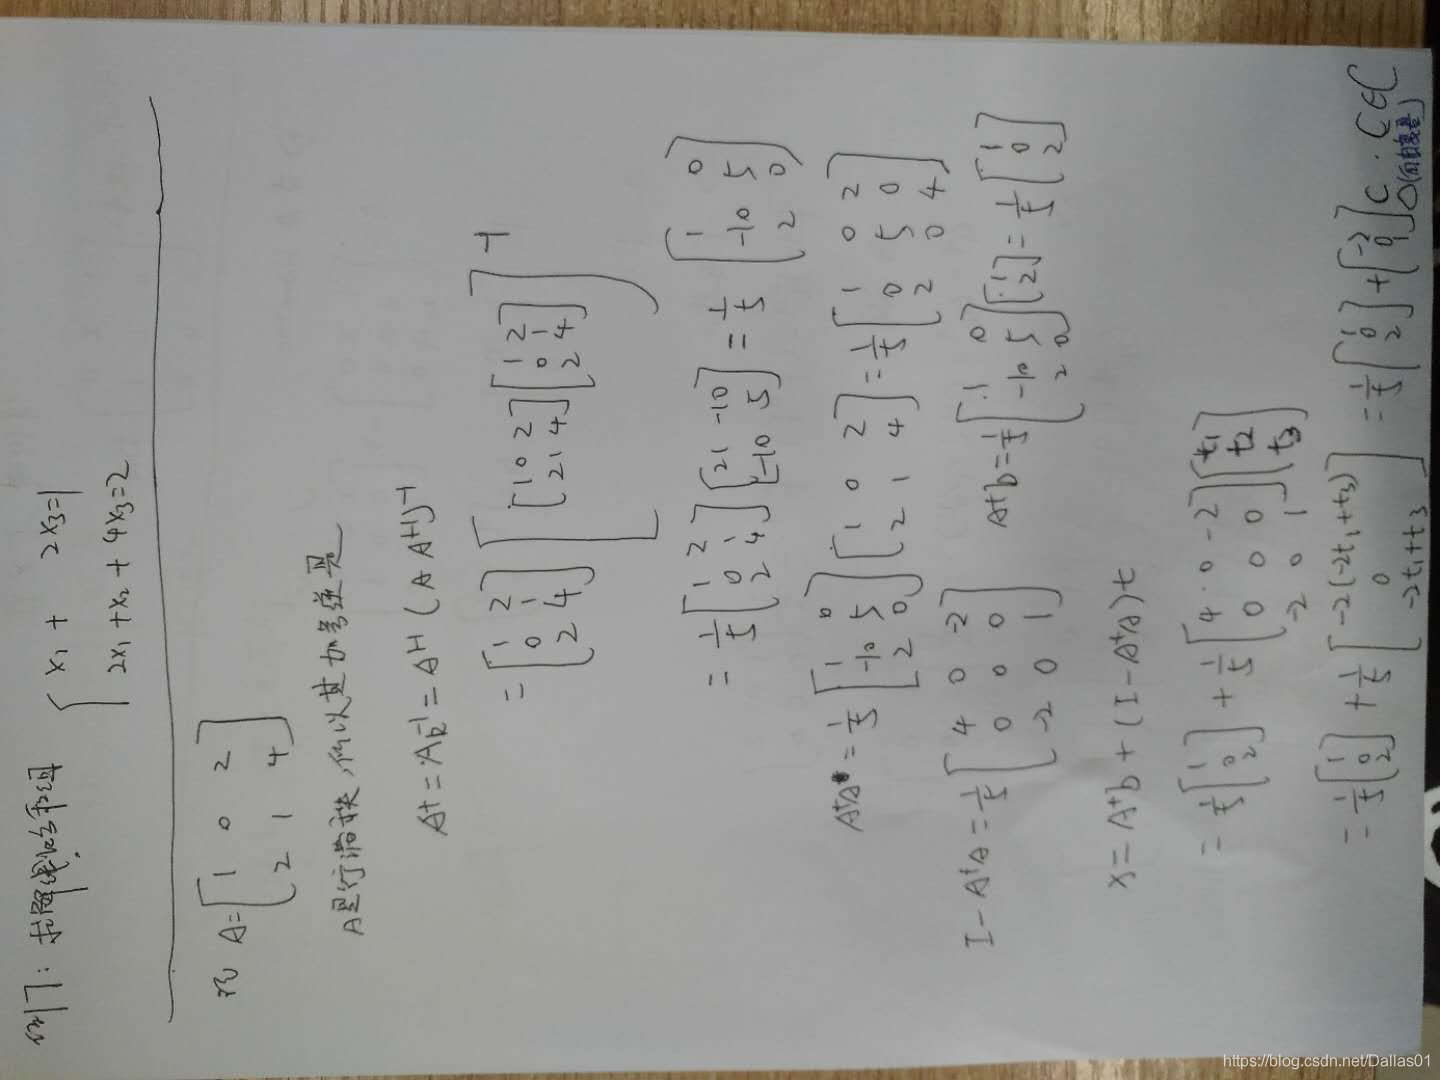 例7: 求解线性方程组 { x₁ + 2x₃=1
2x₁+x₂+4x₃=2
A= [1 0 2
2 1 4]
A是行满秩,所以其加号逆是
A⁺=A_R⁻¹=Aᴴ(AAᴴ)⁻¹
= [1 2
0 1
2 4] [ [1 0 2
2 1 4] [1 2
0 1
2 4] ]⁻¹
= 1/5 [1 2
0 1
2 4] [21 -10
-10 5] = 1/5 [1 0
-10 5
2 0]
A⁺A = 1/5 [1 0
-10 5
2 0] [1 0 2
2 1 4] = 1/5 [1 0 2
0 5 0
2 0 4]
I-A⁺A = 1/5 [4 0 -2
0 0 0
-2 0 1] A⁺b = 1/5 [1 0
-10 5
2 0] [1
2] = 1/5 [1
0
2]
x = A⁺b + (I-A⁺A)t
= 1/5 [1
0
2] + 1/5 [4 0 -2
0 0 0
-2 0 1] [t₁
t₂
t₃]
= 1/5 [1
0
2] + 1/5 [-2(-2t₁+t₃)
0
-2t₁+t₃] = 1/5 [1
0
2] + [-2
0
1] C . C∈C
(自由变量)
https://blog.csdn.net/Dallas01